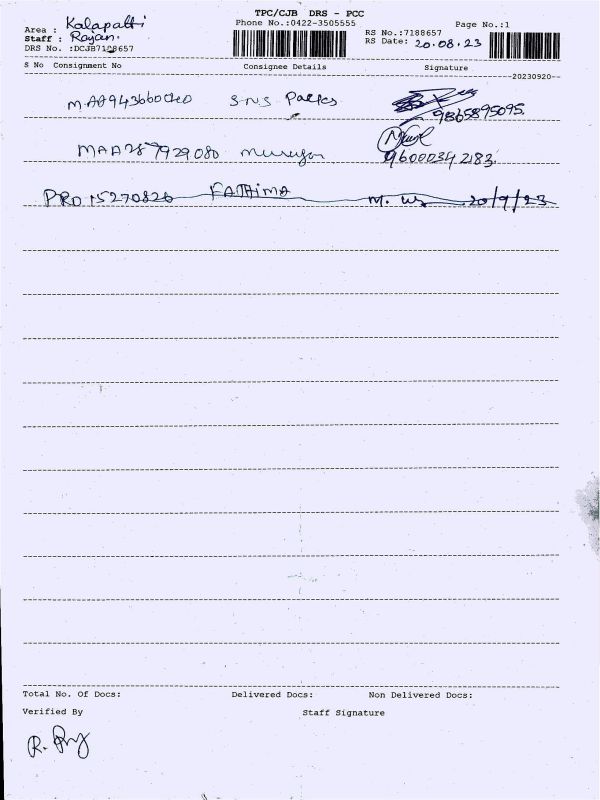 TPC/CJB DRS - PCC
Area : Kalapatti
Phone No.:0422-3505555
Page No.:1
Staff : Rajan.
RS No.:7188657
DRS No. :DCJB7188657
RS Date: 20.08.23
S No Consignment No Consignee Details Signature
--20230920--
SNS
9865895095.
MAA287929080 murugan
96000342183.
PRO15270826 FATHIMA M. 20/9/23
Total No. Of Docs: Delivered Docs: Non Delivered Docs:
Verified By Staff Signature